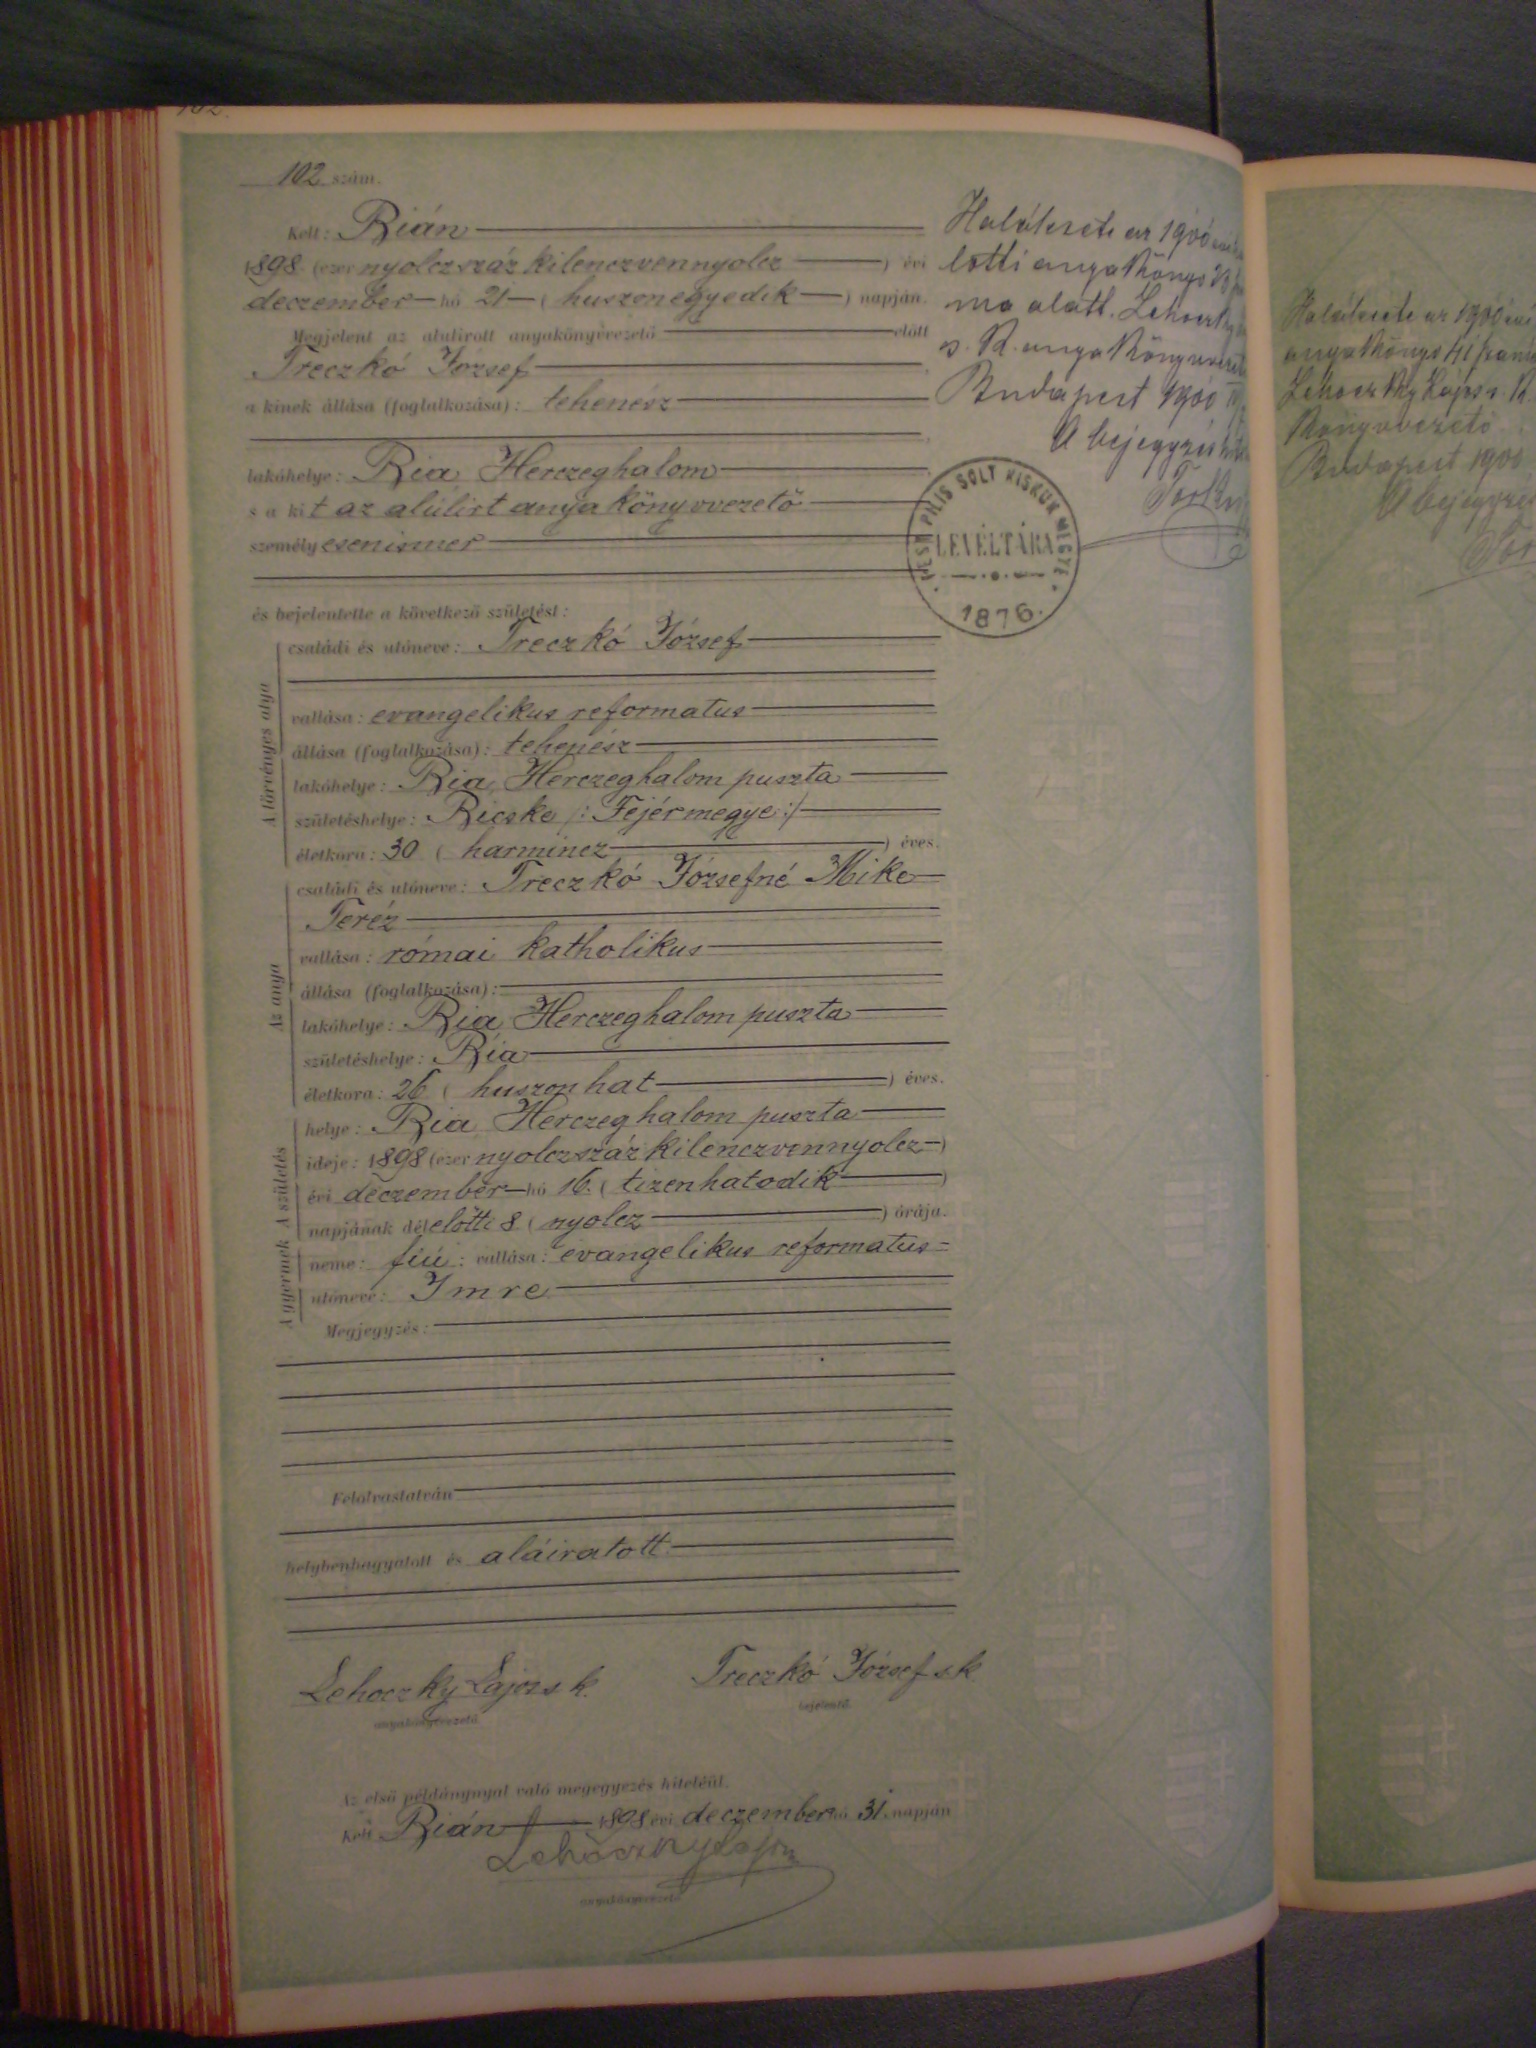 102 szám.
Kelt: Bián
1898 (ezer nyolczszáz kilenczvennyolcz) évi
deczember hó 21 (huszonegyedik) napján.
Megjelent az alulirott anyakönyvvezető előtt
Treczkó József
a kinek állása (foglalkozása): tehenész
lakóhelye: Bia Herczeghalom
s a kit az alúlirt anyakönyvvezető
személyesen ismer
és bejelentette a következő születést:
A törvényes atya
családi és utóneve: Treczkó József
vallása: evangelikus reformatus
állása (foglalkozása): tehenész
lakóhelye: Bia, Herczeghalom puszta
születéshelye: Bicske /: Fejérmegye :/
életkora: 30 (harmincz) éves.
Az anya
családi és utóneve: Treczkó Józsefné Mike
Teréz
vallása: római katholikus
állása (foglalkozása):
lakóhelye: Bia Herczeghalom puszta
születéshelye: Bia
életkora: 26 (huszonhat) éves.
A születés
helye: Bia Herczeghalom puszta
ideje: 1898 (ezer nyolczszáz kilenczvennyolcz)
évi deczember hó 16. (tizenhatodik)
napjának délelőtti 8 (nyolcz) órája.
A gyermek
neme: fiú; vallása: evangelikus reformatus
utóneve: Imre
Megjegyzés:
Felolvastatván
helybenhagyatott és aláiratott
Lehoczky Lajos s k.
anyakönyvvezető
Treczkó József s k
bejelentő
Az első példánynyal való megegyezés hiteléül.
Kelt Bián 1898 évi deczember hó 31 napján
Lehoczky Lajos
anyakönyvvezető
Halálesete az 1900
lotti anyakönyv
ma alatt. Lehoczky
s. k. anyakönyvvezető
Budapest 1900
A bejegyzés
PEST PILIS SOLT KISKUN MEGYE
LEVÉLTÁRA
1876.
Halálesete az 1900 évi
anyakönyv 41 szám
Lehoczky Lajos s. k.
könyvvezető
Budapest 1900
A bejegyzés